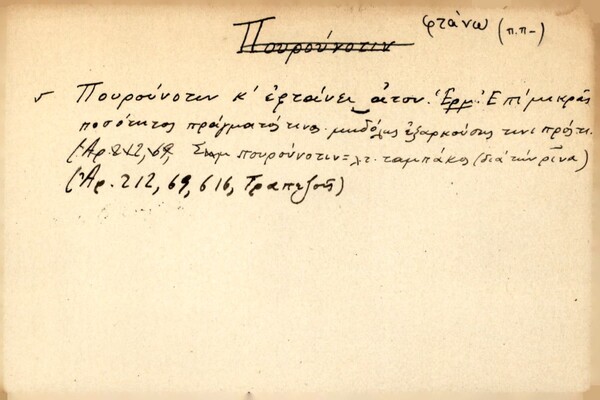 Πουρούνοτιν φτάνω (π.π-)
Πουρούνοτιν κ' ἐφταίνει ἄτον. Ἑρμ. Ἐπὶ μικρᾶς
ποσότητος πράγματός τινος μηδόλως ἐξαρκούσης
(Ἀρ. 212, 69, Σημ πουρούνοτιν = λτ. ταμπάκος (διὰ τὴν ρῖνα)
(Ἀρ. 212, 69, 616, Τραπεζοῦς)